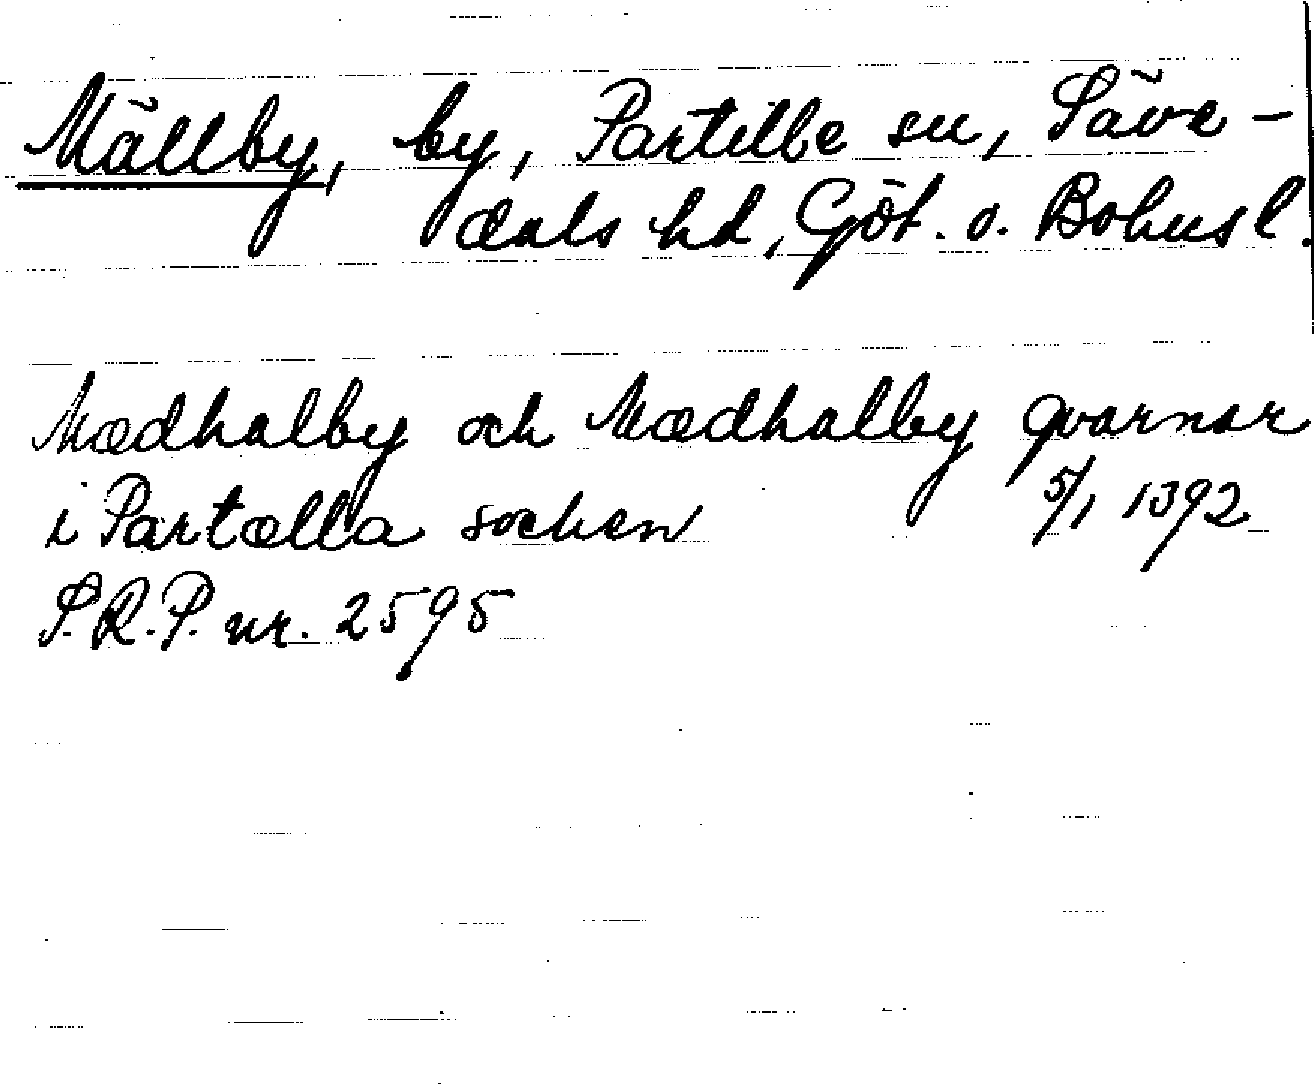 Mällby, by, Partille sn, Säve-
dals hd, Göt. o. Bohusl.
Mædhalby och Mædhalby qvarnar
i Partælla sochen 5/1 1392
S.R.P. nr. 2595